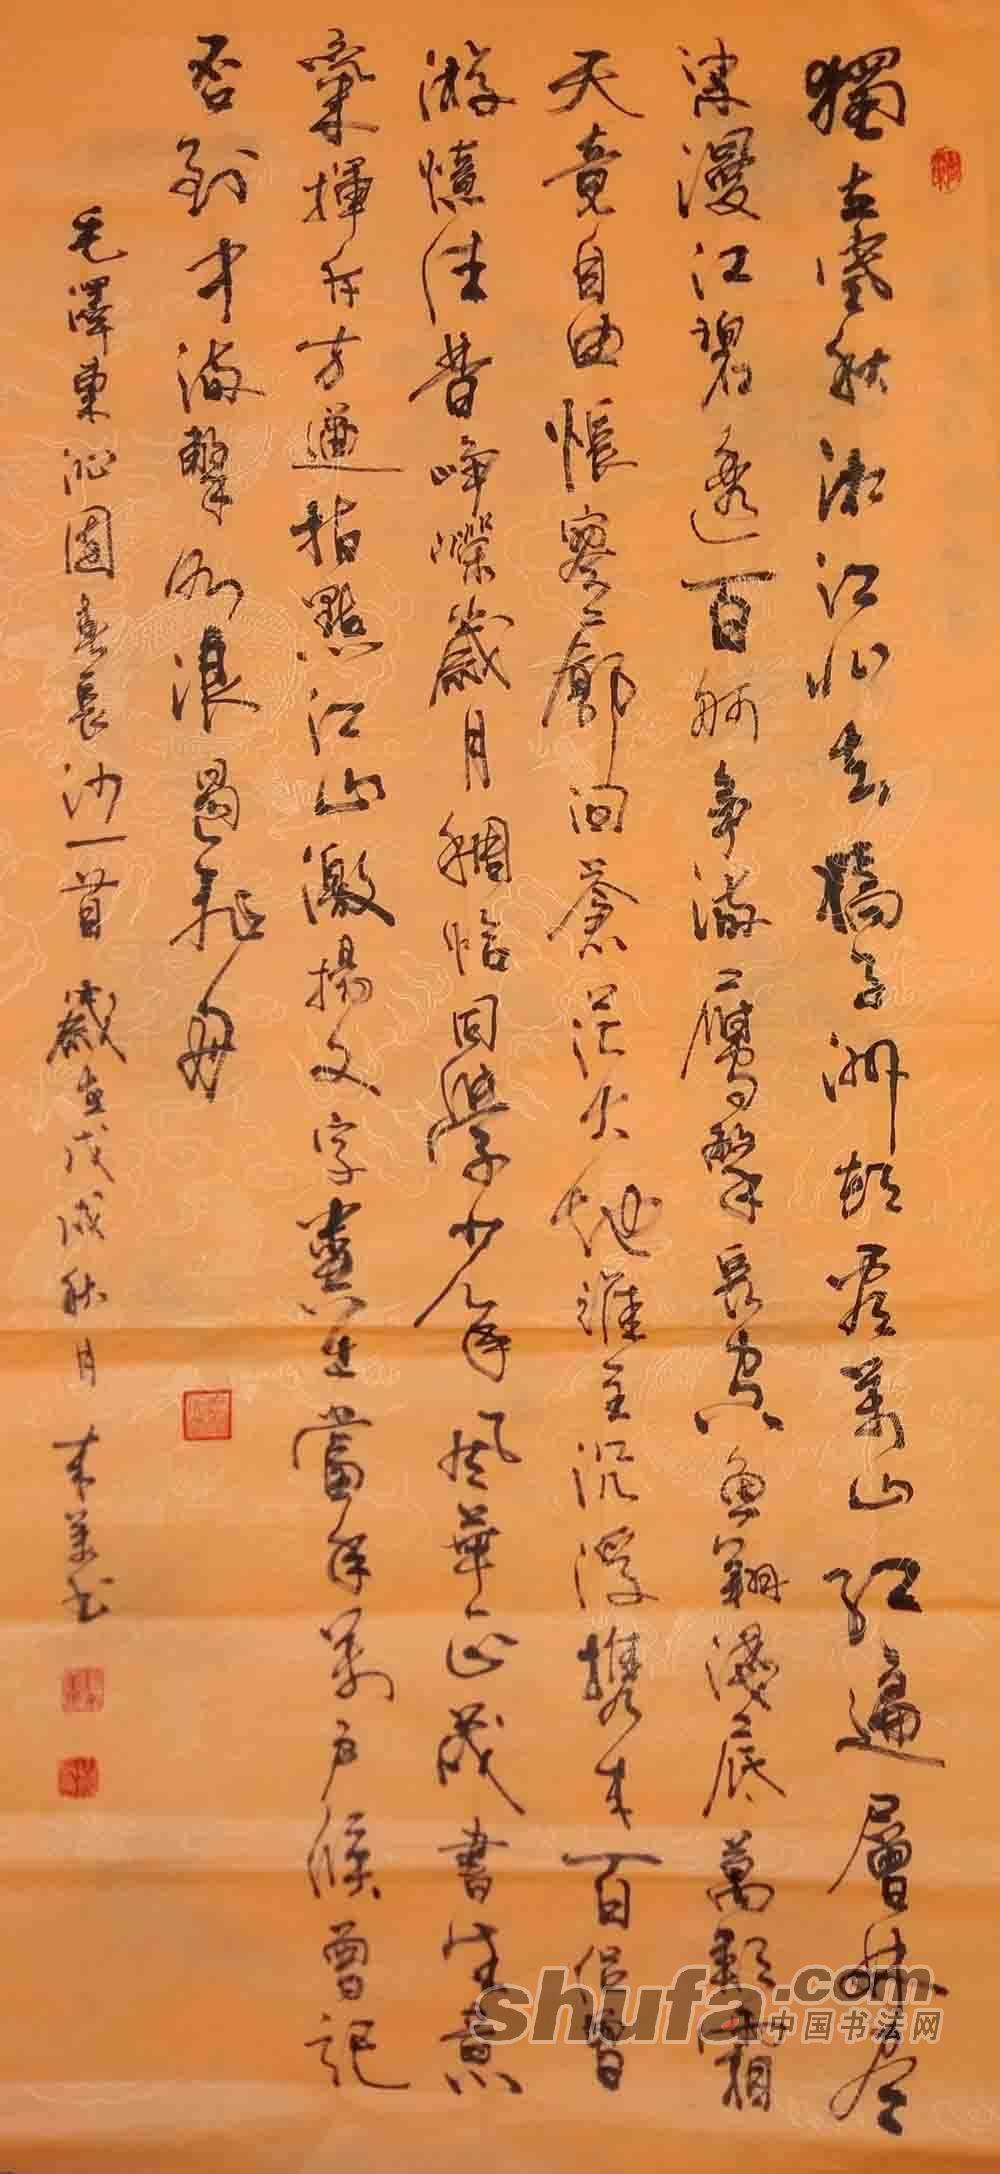 獨立寒秋湘江北去橘子洲頭看萬山红遍層林尽
染漫江碧透百舸争流鷹擊長空魚翔淺底萬類霜
天竟自由悵寥廓问蒼茫大地誰主沉浮攜来百侣曾
游憶往昔崢嶸歲月稠恰同學少年风華正茂書生意
氣揮斥方遒指點江山激揚文字糞土當年萬户侯曾記
否到中流擊水浪遏飛舟
毛澤東沁園春長沙一首 歲在戊戌秋月
shufa.com
中国书法网